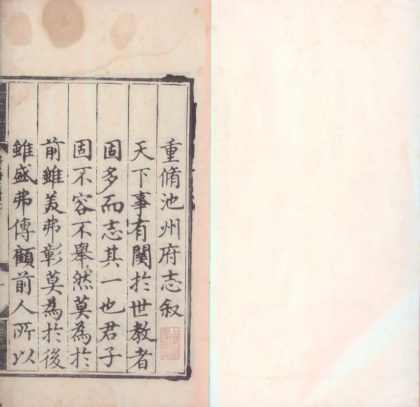 重脩池州府志叙
天下事有關於世教者
固多而志其一也君子
固不容不舉然莫為於
前雖美弗彰莫為於後
雖盛弗傳顧前人所以